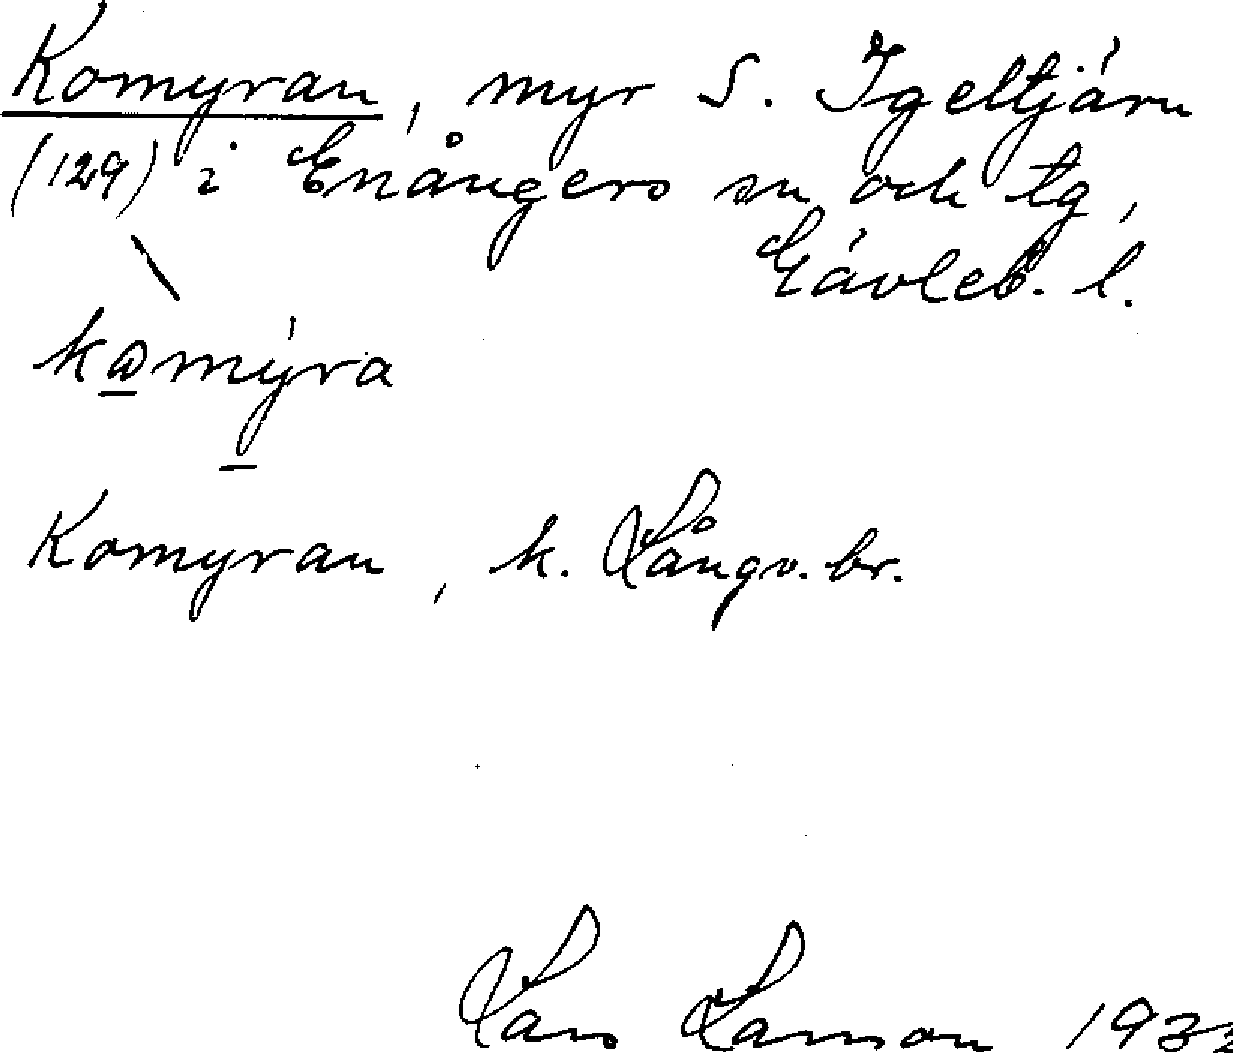 Komyran, myr S. Igeltjärn
(129) i Enångers sn och tg,
Gävleb. l.
komýra
Komyran, k. Långv. br.
Lars Larsson